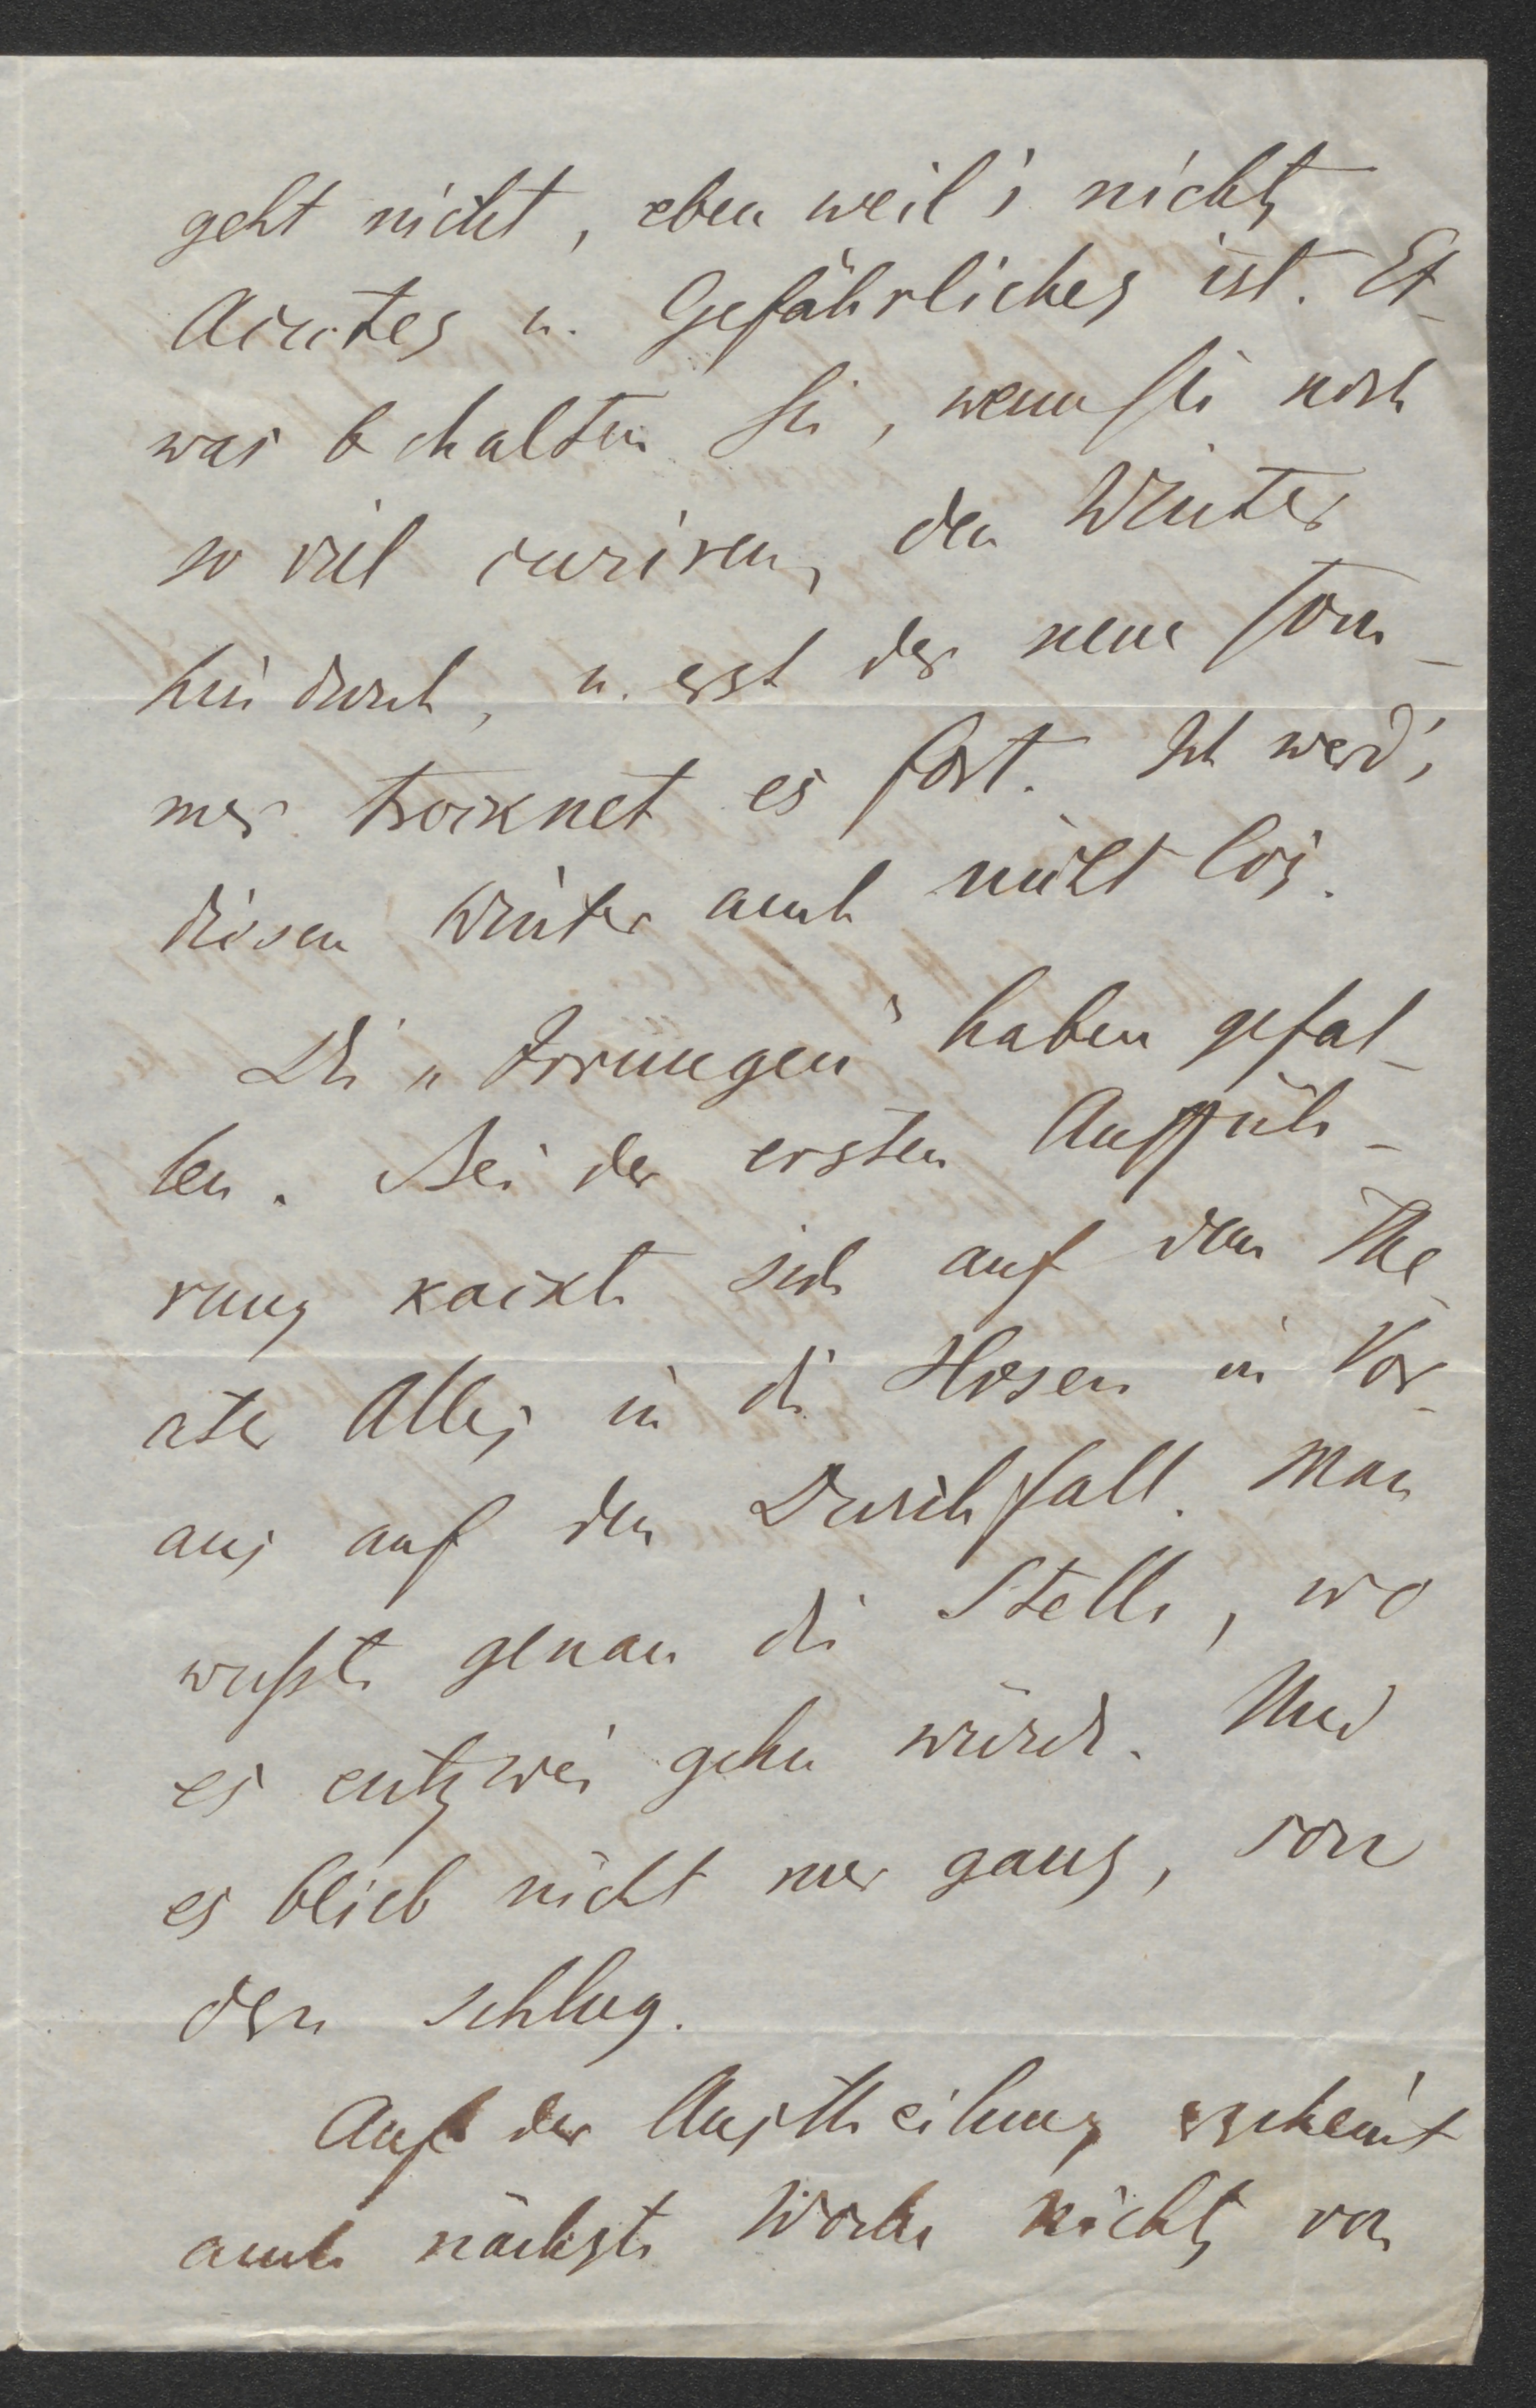 geht nicht, eben weil's nichts
Acutes u. Gefährliches ist. Et-
was behalten Sie, wenn Sie noch
so viel curiren, den Winter
hindurch, u. erst der neue Som-
mer trocknet es fort. Ich werd's
diesen Winter auch nicht los.
Die „Irrungen“ haben gefal-
len. Bei der ersten Auffüh-
rung kackte sich auf dem The-
ater Alles in die Hosen in Vor-
aus auf den Durchfall. Man
wußte genau die Stelle, wo
es entzwei gehn würde. Und
es blieb nicht nur ganz, son
dern schlug.
Auf der Austheilung erscheint
auch nächste Woche nichts von